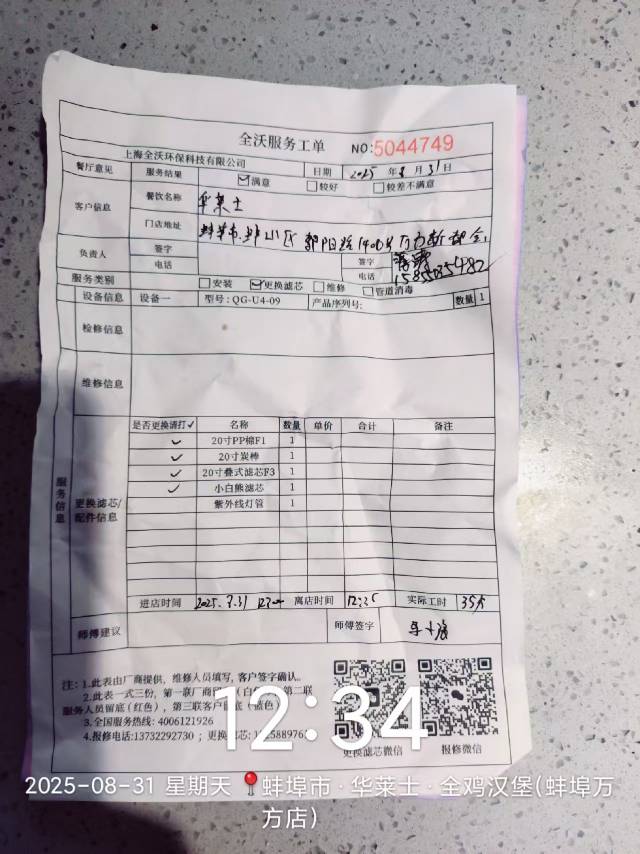 全沃服务工单 NO:5044749
上海全沃环保科技有限公司 日期 2025年8月31日
餐厅意见 服务结果 满意 较好 较差不满意
客户信息 餐饮名称 华莱士
门店地址 蚌埠市 蚌山区 朝阳路1400号万方新都会
负责人 签字 签字
电话 电话 15855035482
服务类别 安装 更换滤芯 维修 管道消毒
设备信息 设备一 型号:QG-U4-09 产品序列号: 数量 1
检修信息
维修信息
服务信息
更换滤芯/配件信息
是否更换请打✓ 名称 数量 单价 合计 备注
✓ 20寸PP棉F1 1
✓ 20寸炭棒 1
✓ 20寸叠式滤芯F3 1
✓ 小白熊滤芯 1
紫外线灯管 1
进店时间 2025.8.31 12:00 离店时间 12:35 实际工时 35分
师傅建议 师傅签字
注:1.此表由厂商提供,维修人员填写,客户签字确认。
2.此表一式三份,第一联厂商留底(白色),第二联
服务人员留底(红色),第三联客户留底(蓝色)
3.全国服务热线:4006121926
4.报修电话:13732292730;更换滤芯:
更换滤芯微信 报修微信
12:34
2025-08-31 星期天 蚌埠市·华莱士·全鸡汉堡(蚌埠万
方店)